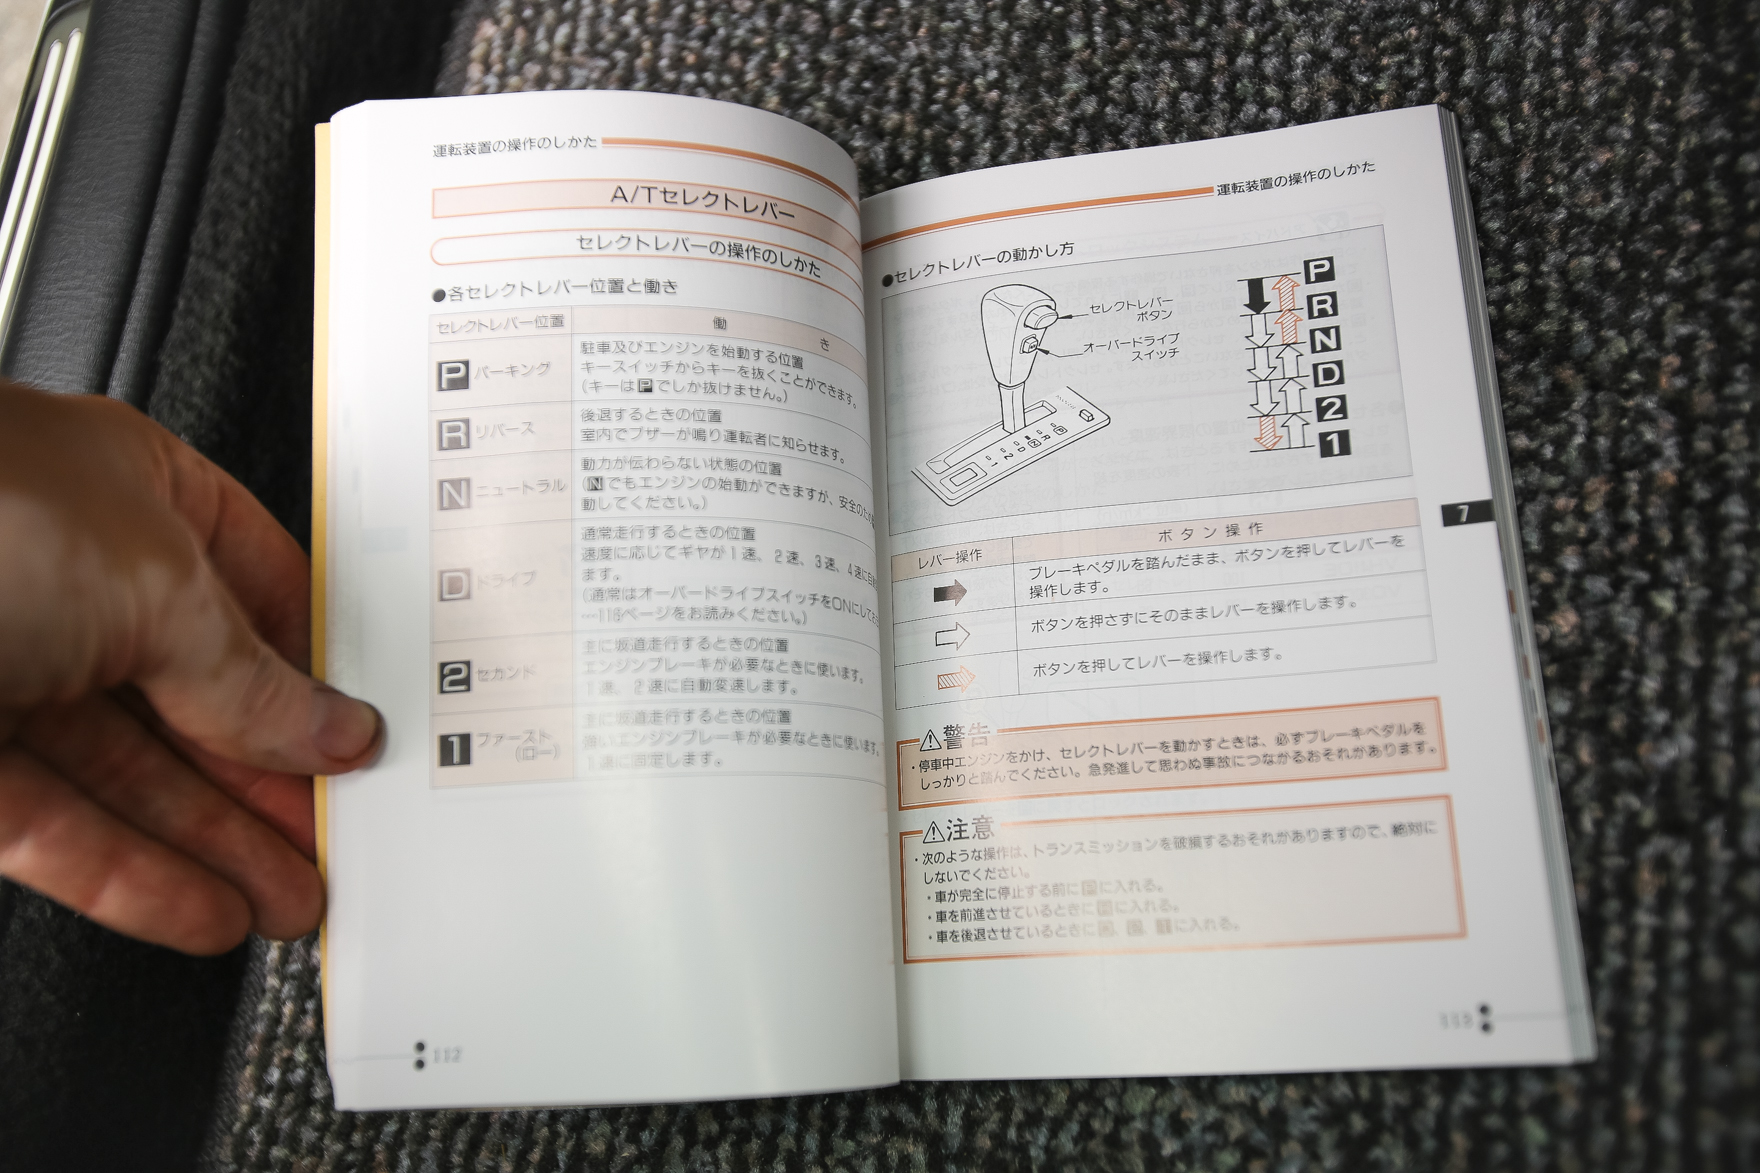 運転装置の操作のしかた
A/Tセレクトレバー
セレクトレバーの操作のしかた
●各セレクトレバー位置と働き
セレクトレバー位置 働き
P パーキング
駐車及びエンジンを始動する位置
キースイッチからキーを抜くことができます。
(キーはPでしか抜けません。)
R リバース
後退するときの位置
室内でブザーが鳴り運転者に知らせます。
N ニュートラル
動力が伝わらない状態の位置
(Nでもエンジンの始動ができますが、安全のため
動してください。)
D ドライブ
通常走行するときの位置
速度に応じてギヤが1速、2速、3速、4速に自
ます。
(通常はオーバードライブスイッチをONにして
…118ページをお読みください。)
2 セカンド
主に坂道走行するときの位置
エンジンブレーキが必要なときに使います。
1速、2速に自動変速します。
1 ファースト
(ロー)
主に坂道走行するときの位置
強いエンジンブレーキが必要なときに使います。
1速に固定します。
112
運転装置の操作のしかた
●セレクトレバーの動かし方
セレクトレバー
ボタン
オーバードライブ
スイッチ
P
R
N
D
2
1
P
R
N
D
2
1
7
レバー操作 ボタン操作
ブレーキペダルを踏んだまま、ボタンを押してレバーを
操作します。
ボタンを押さずにそのままレバーを操作します。
ボタンを押してレバーを操作します。
警告
・停車中エンジンをかけ、セレクトレバーを動かすときは、必ずブレーキペダルを
しっかりと踏んでください。急発進して思わぬ事故につながるおそれがあります。
注意
・次のような操作は、トランスミッションを破損するおそれがありますので、絶対に
しないでください。
・車が完全に停止する前にPに入れる。
・車を前進させているときにRに入れる。
・車を後退させているときに、、に入れる。
113